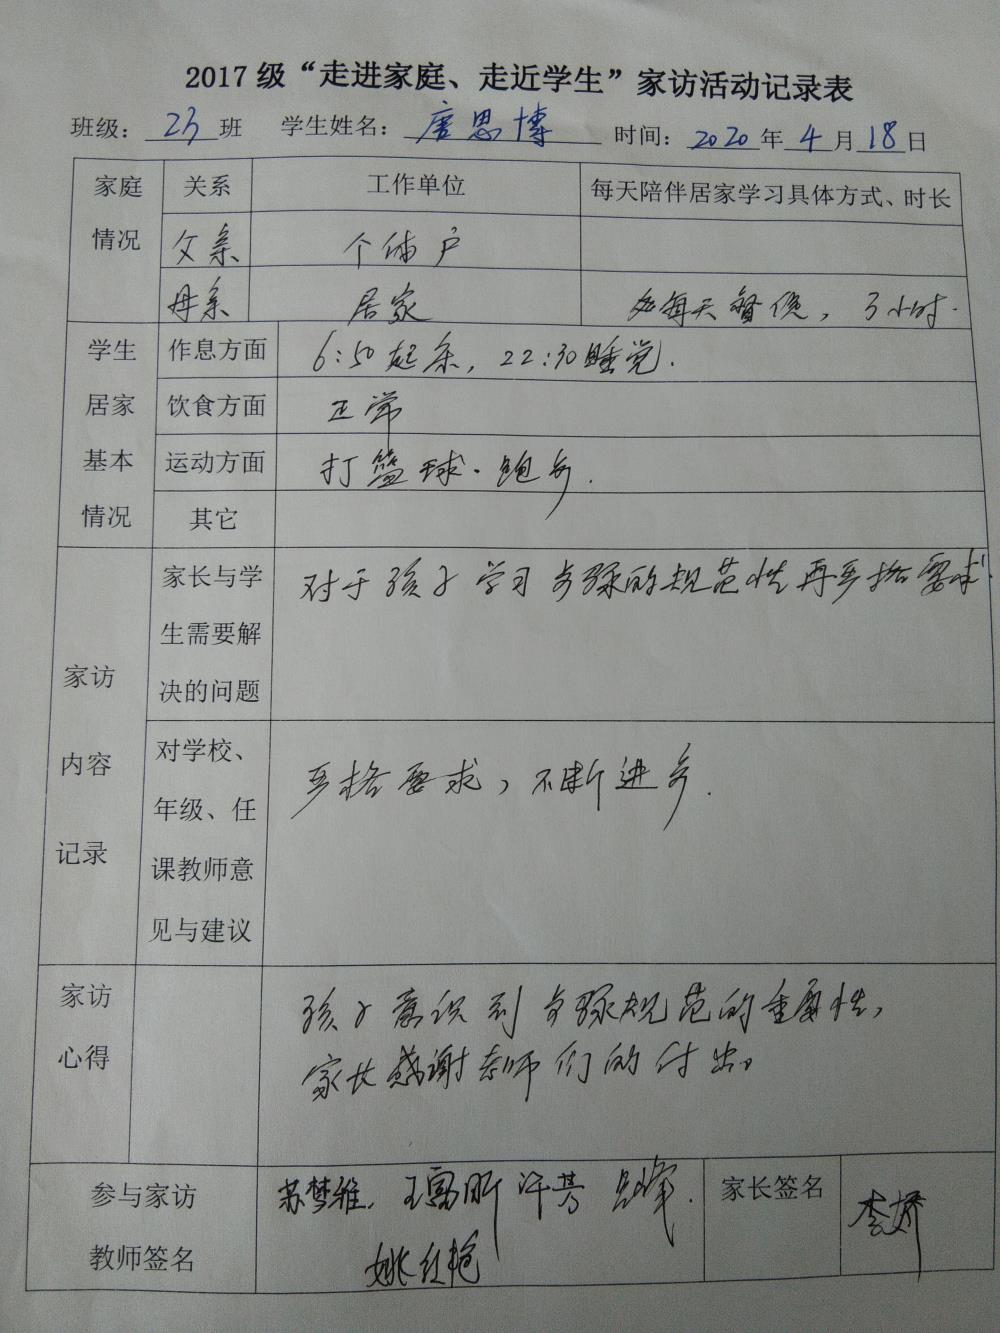 2017 级“走进家庭、走近学生”家访活动记录表
班级: 23 班 学生姓名: 唐思博 时间: 2020 年 4 月 18 日
家庭情况 关系 工作单位 每天陪伴居家学习具体方式、时长
父亲 个体户
母亲 居家 每天督促, 3小时.
学生居家基本情况
作息方面 6:50起床, 22:30睡觉.
饮食方面 正常
运动方面 打篮球. 跑步.
其它
家访内容记录
家长与学 对于孩子学习步骤的规范性再严格要求
生需要解
决的问题
对学校、
年级、任 严格要求, 不断进步.
课教师意
见与建议
家访 孩子意识到步骤规范的重要性,
心得 家长感谢老师们的付出。
参与家访 苏梦雅.
教师签名 姚红艳
家长签名 李娇